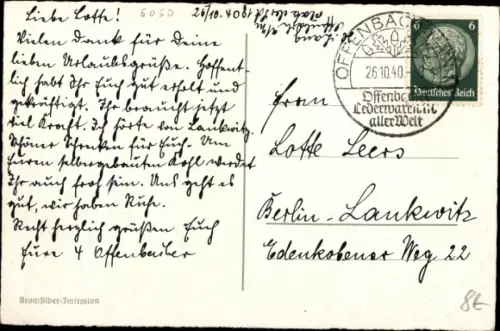 Liebe Lotte!
Vielen Dank für Deine
lieben Urlaubsgrüße. Hoffent-
lich habt Ihr Euch gut erholt und
gekräftigt. Ihr braucht jetzt
viel Kraft. Ich hörte von Lankwitz.
Schöner Schrecken für Euch. Um
Euren selbergebauten Kohl werdet
Ihr auch froh sein. Uns geht es
gut, wir haben Ruhe.
Recht herzlich grüßen Euch
Eure 4 Offenbacher
6050
24/10. 1940
OFFENBACH
26.10.40
Offenbacher
Lederwaren in
aller Welt
6 6
Deutsches Reich
Frau
Lotte Leers
Berlin-Lankwitz
Edenkobener Weg 22
Bromsilber-Imitation
8€